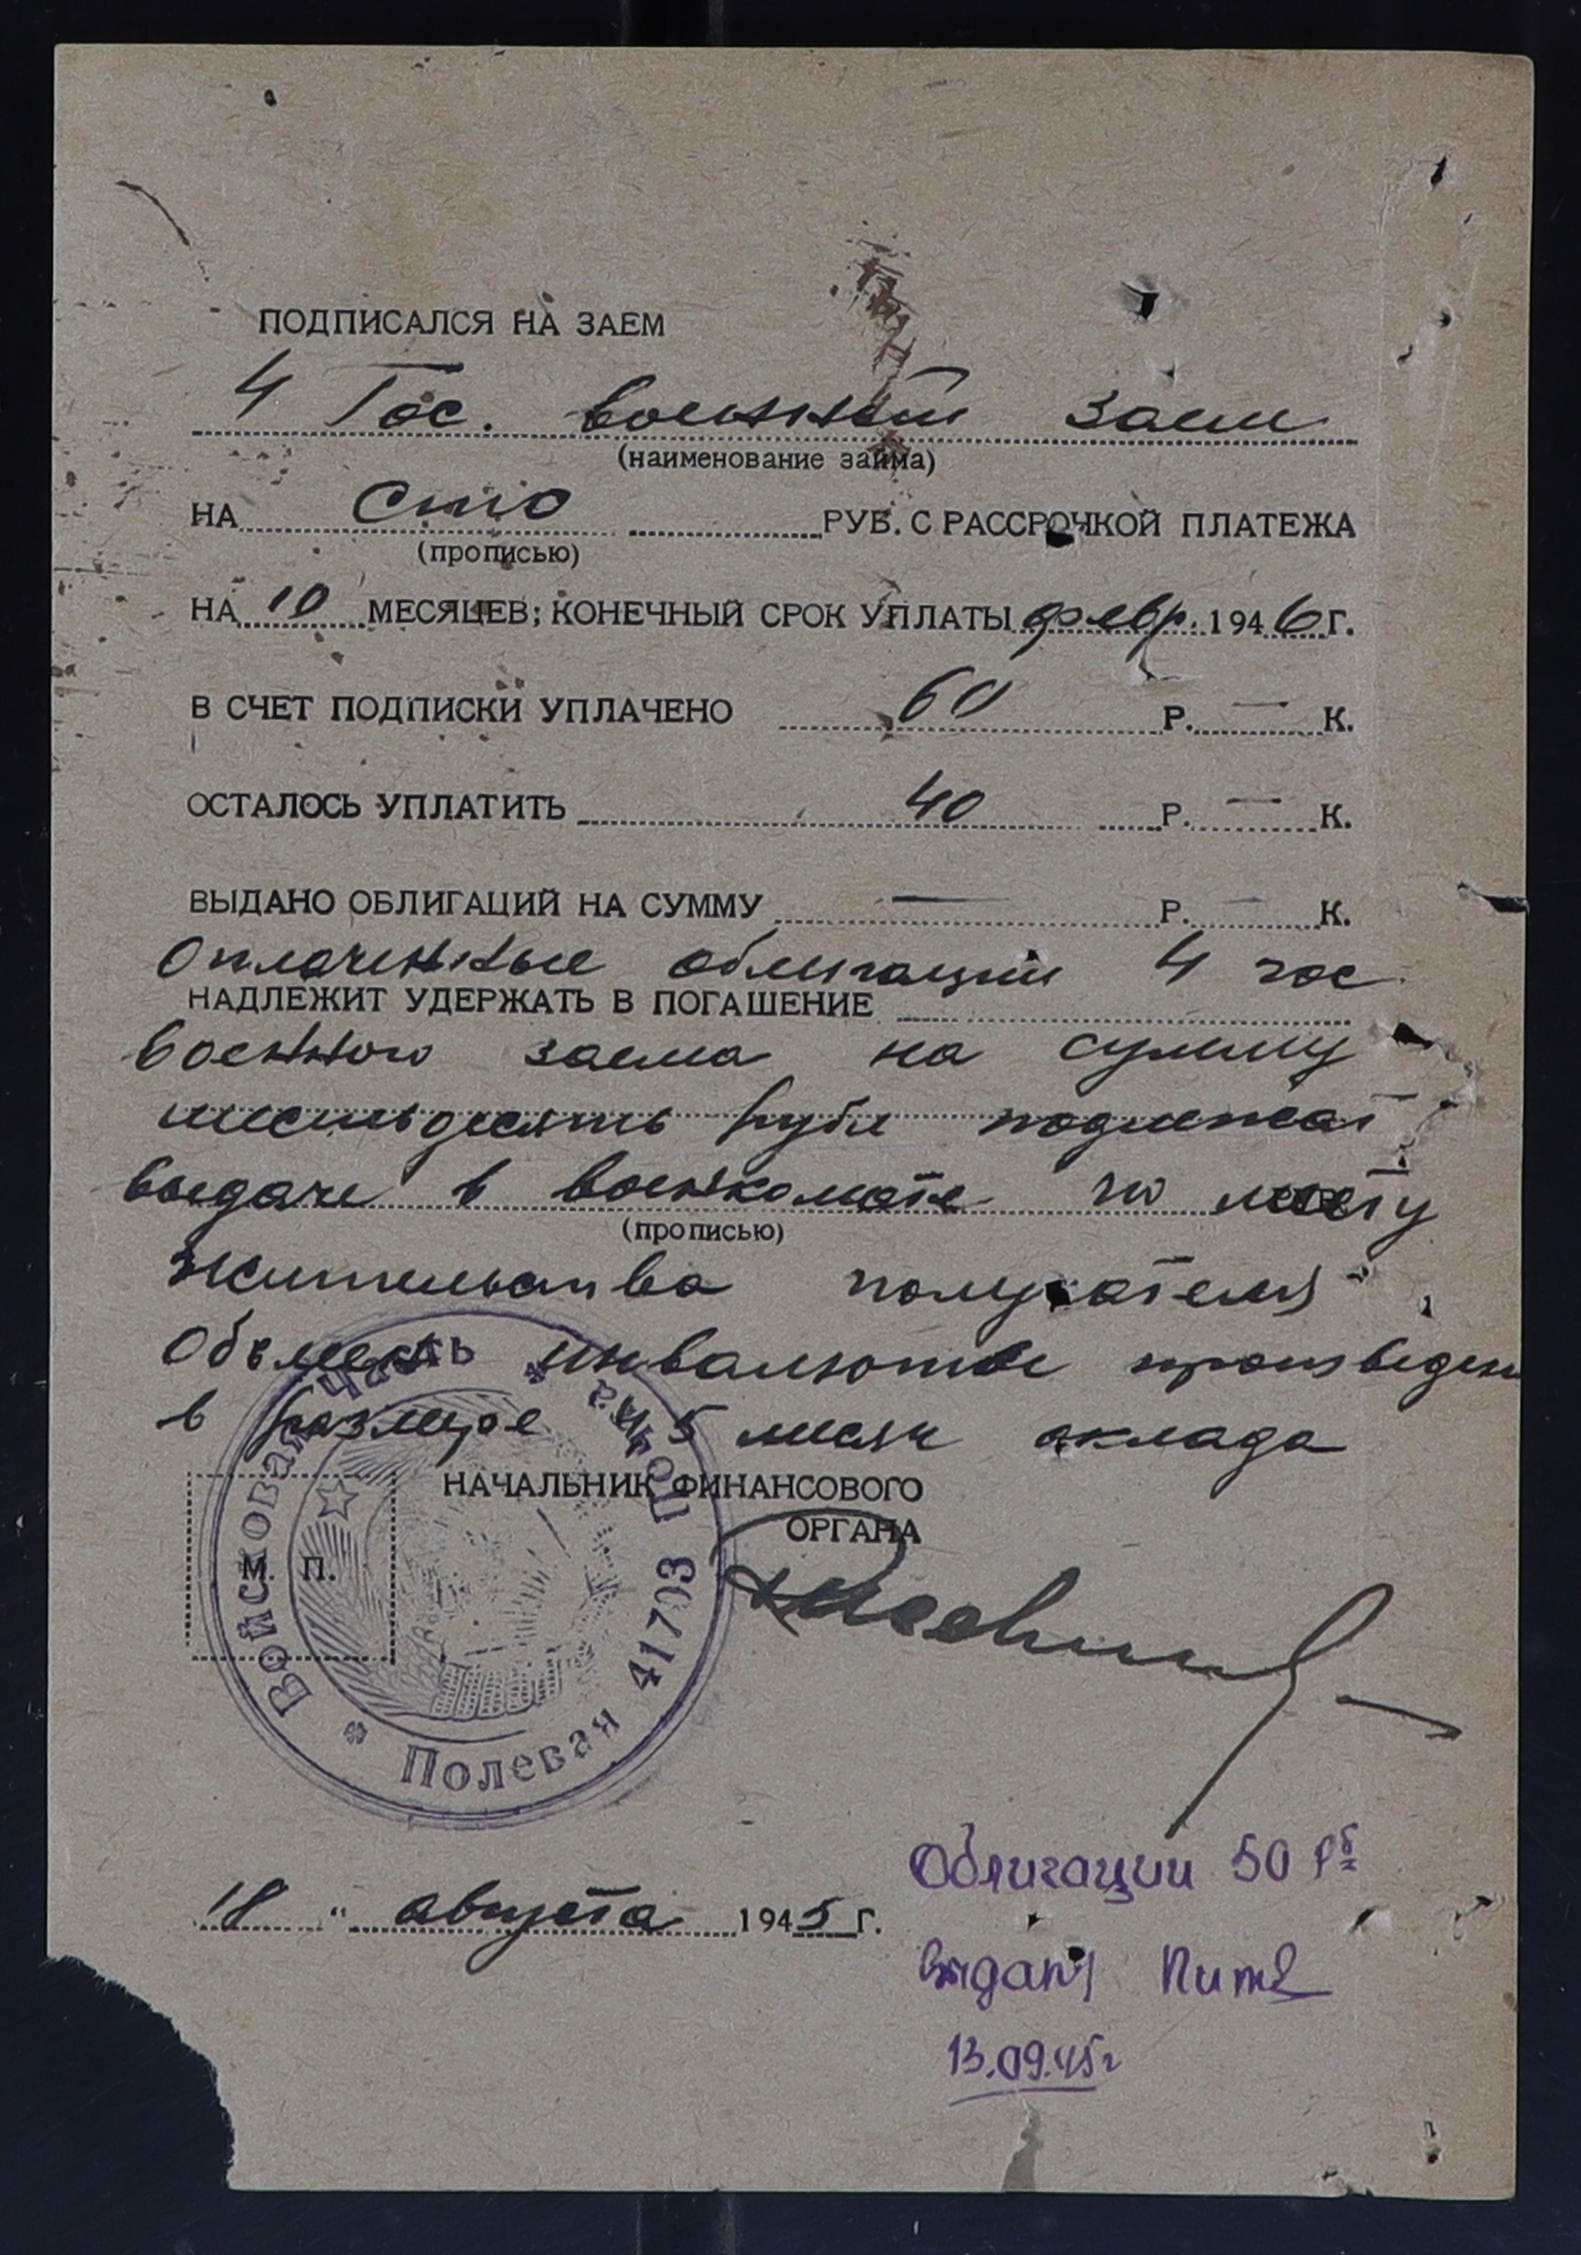 ПОДПИСАЛСЯ НА ЗАЕМ
4 Гос. военный заем
(наименование займа)
НА сто РУБ. С РАССРОЧКОЙ ПЛАТЕЖА
(прописью)
НА 10 МЕСЯЦЕВ; КОНЕЧНЫЙ СРОК УПЛАТЫ февр. 1946 г.
В СЧЕТ ПОДПИСКИ УПЛАЧЕНО 60 Р. — К.
ОСТАЛОСЬ УПЛАТИТЬ 40 Р. — К.
ВЫДАНО ОБЛИГАЦИЙ НА СУММУ — Р. — К.
Оплаченные облигации 4 гос
НАДЛЕЖИТ УДЕРЖАТЬ В ПОГАШЕНИЕ
военного заема на сумму
шестьдесят рубл подлежат
выдаче в военкомате по месту
(прописью)
жительства получателя
Обмен инвалюты произведен
в размере 5 месяч оклада
НАЧАЛЬНИК ФИНАНСОВОГО
ОРГАНА
М. П.
Войсковая часть * Полевая почта 41703 *
18 " августа 1945 г.
Облигации 50 рб
выданы
13.09.45г